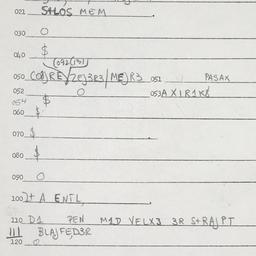 021 S+LOS MEM
030 O
040 $
(092(151)
050 COA)RE / ZEJ3R3 / MEJR3 051 PASAX
052 O 053 A X I R 1 K
054 $
060 $
070 $
080 $
090 O
100 2+ A ENTL
110 D1 PEN M1D VELX3 3R S+RAJPT
111 BLAJFED3R
120 O